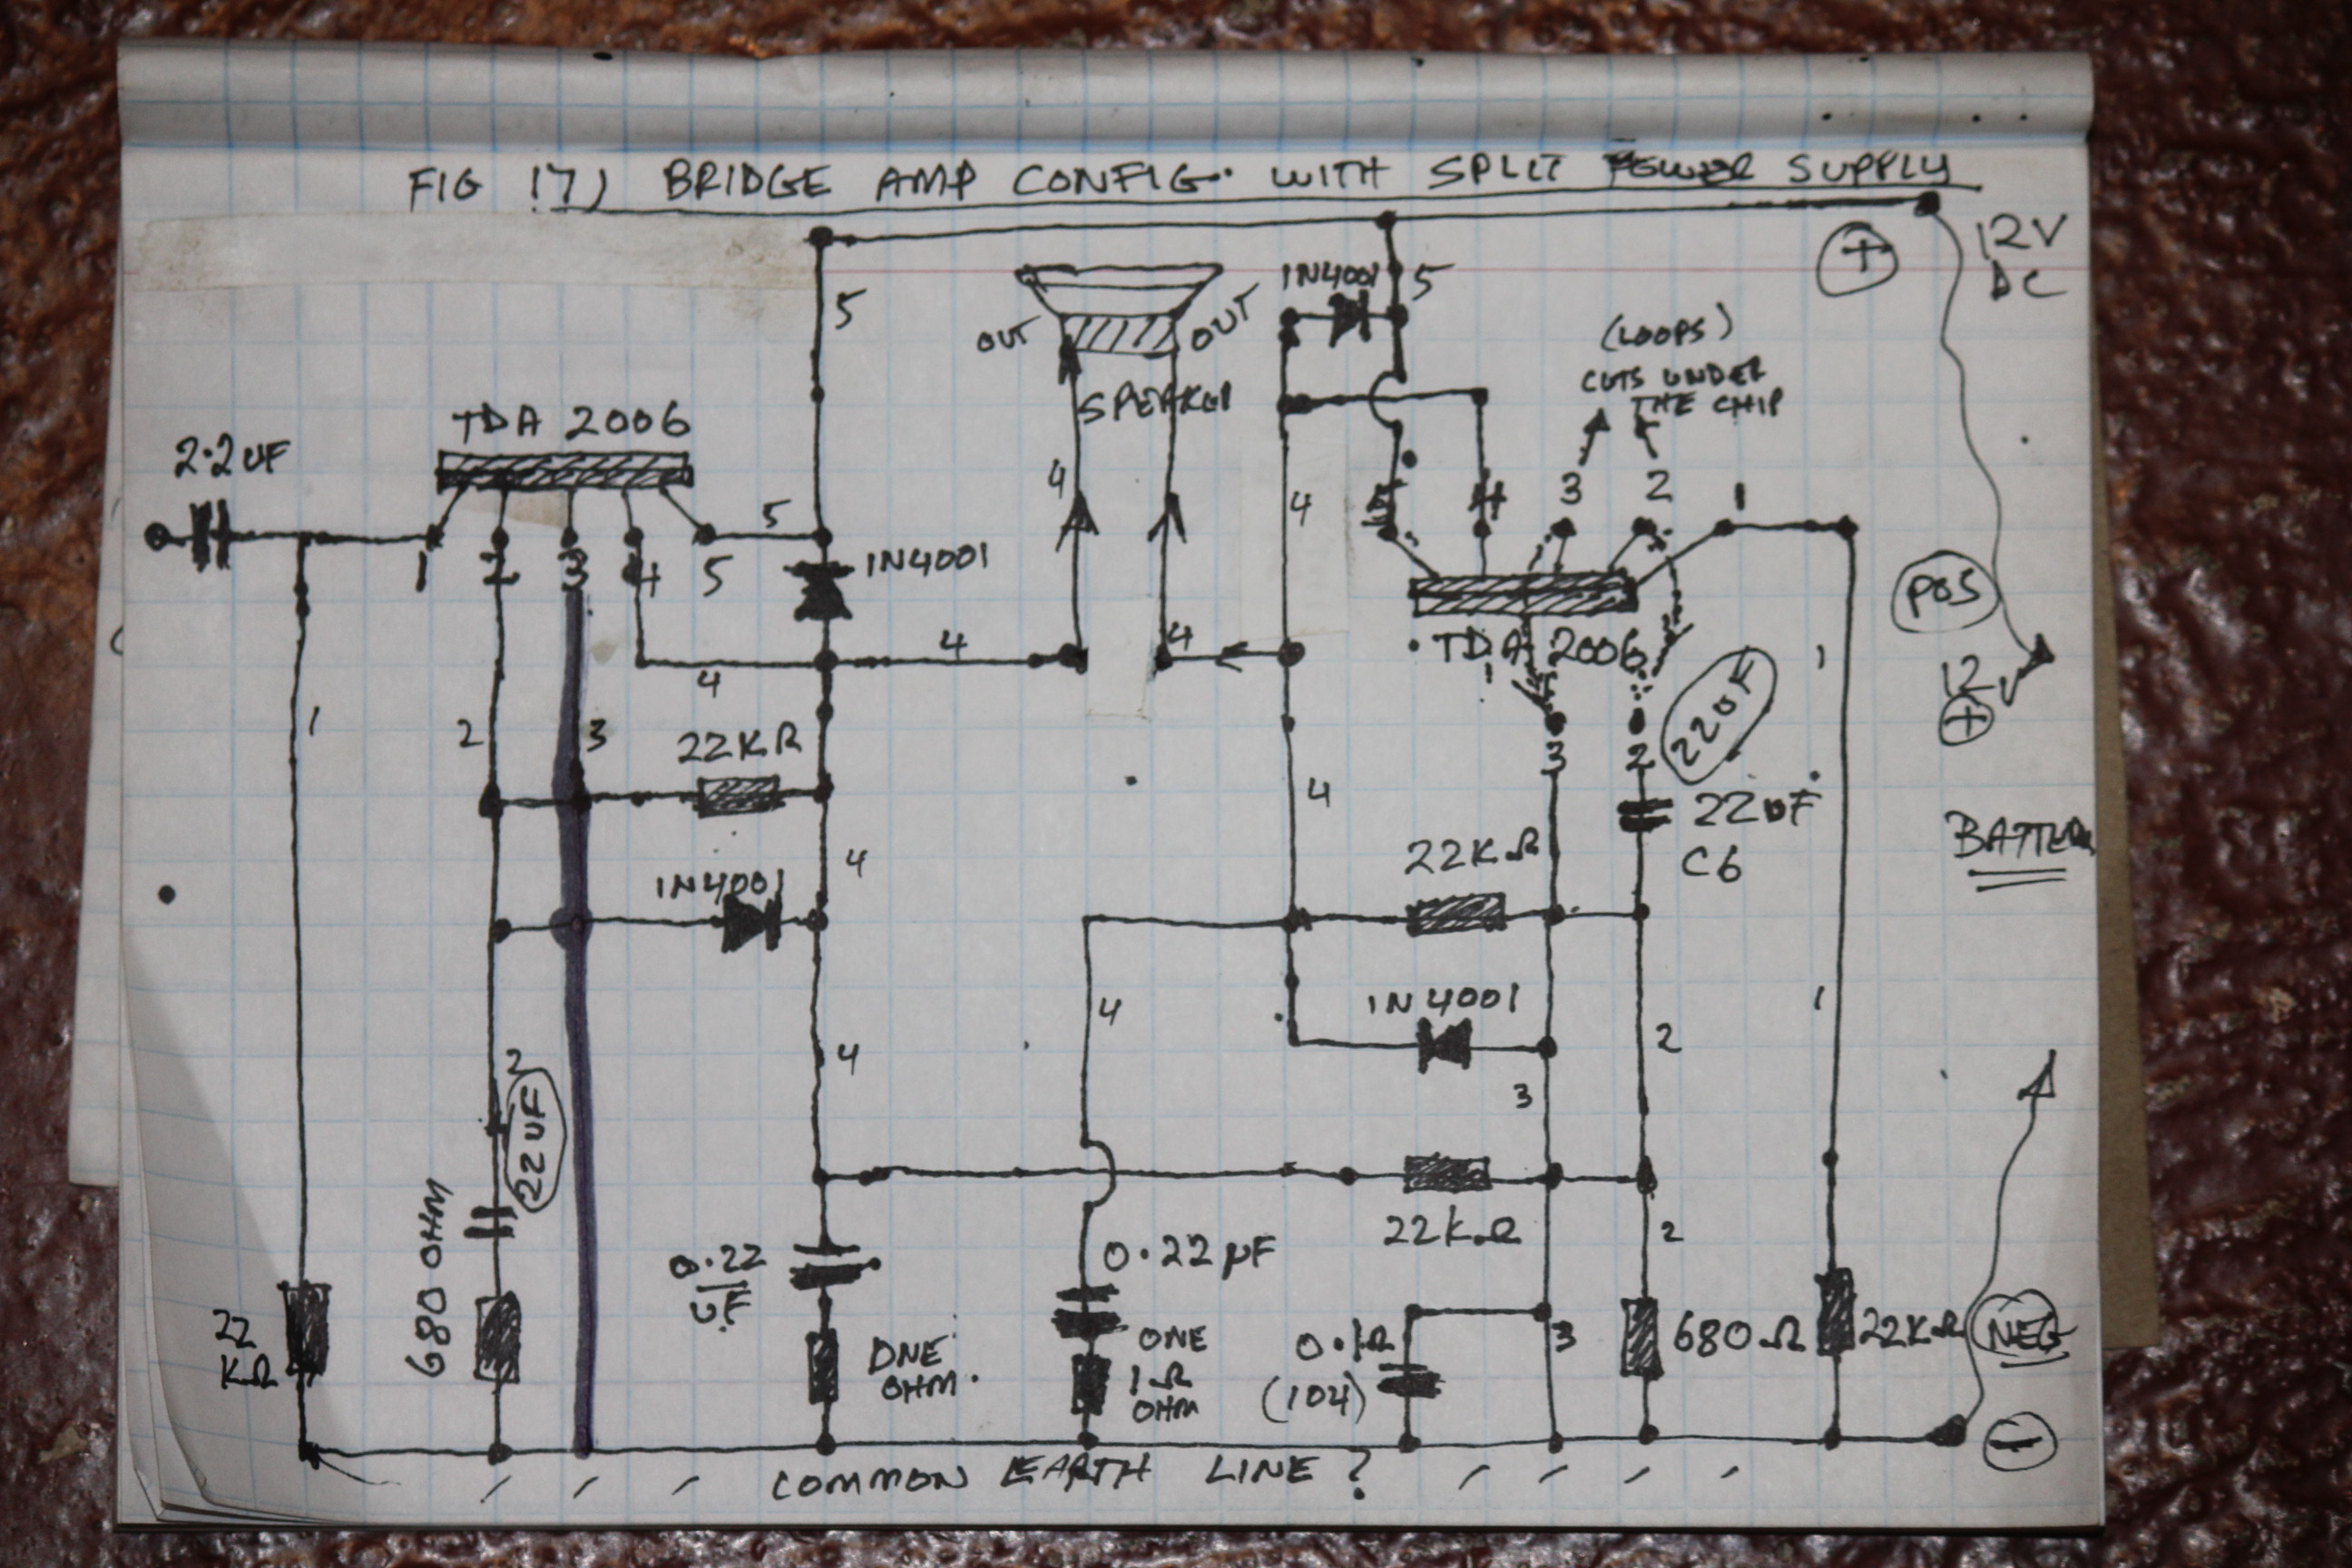 FIG 17) BRIDGE AMP CONFIG. WITH SPLIT POWER SUPPLY
12V
DC
+
1N4001
5
5
OUT
OUT
SPEAKER
(LOOPS)
CUTS UNDER
THE CHIP
TDA 2006
2.2UF
4
4
5
4
3
2
1
5
1N4001
1
2
3
4
5
POS
4
4
4
TDA 2006
1
12V
+
22UF
1
2
3
22KR
3
2
4
22UF
C6
BATTERY
22KΩ
1N4001
4
1N4001
4
1
2
4
2
3
22UF
680 OHM
22KΩ
2
0.22
UF
0.22µF
22
KΩ
ONE
OHM.
ONE
1Ω
OHM
0.1Ω
(104)
3
680Ω
22KΩ
NEG
-
COMMON EARTH LINE?